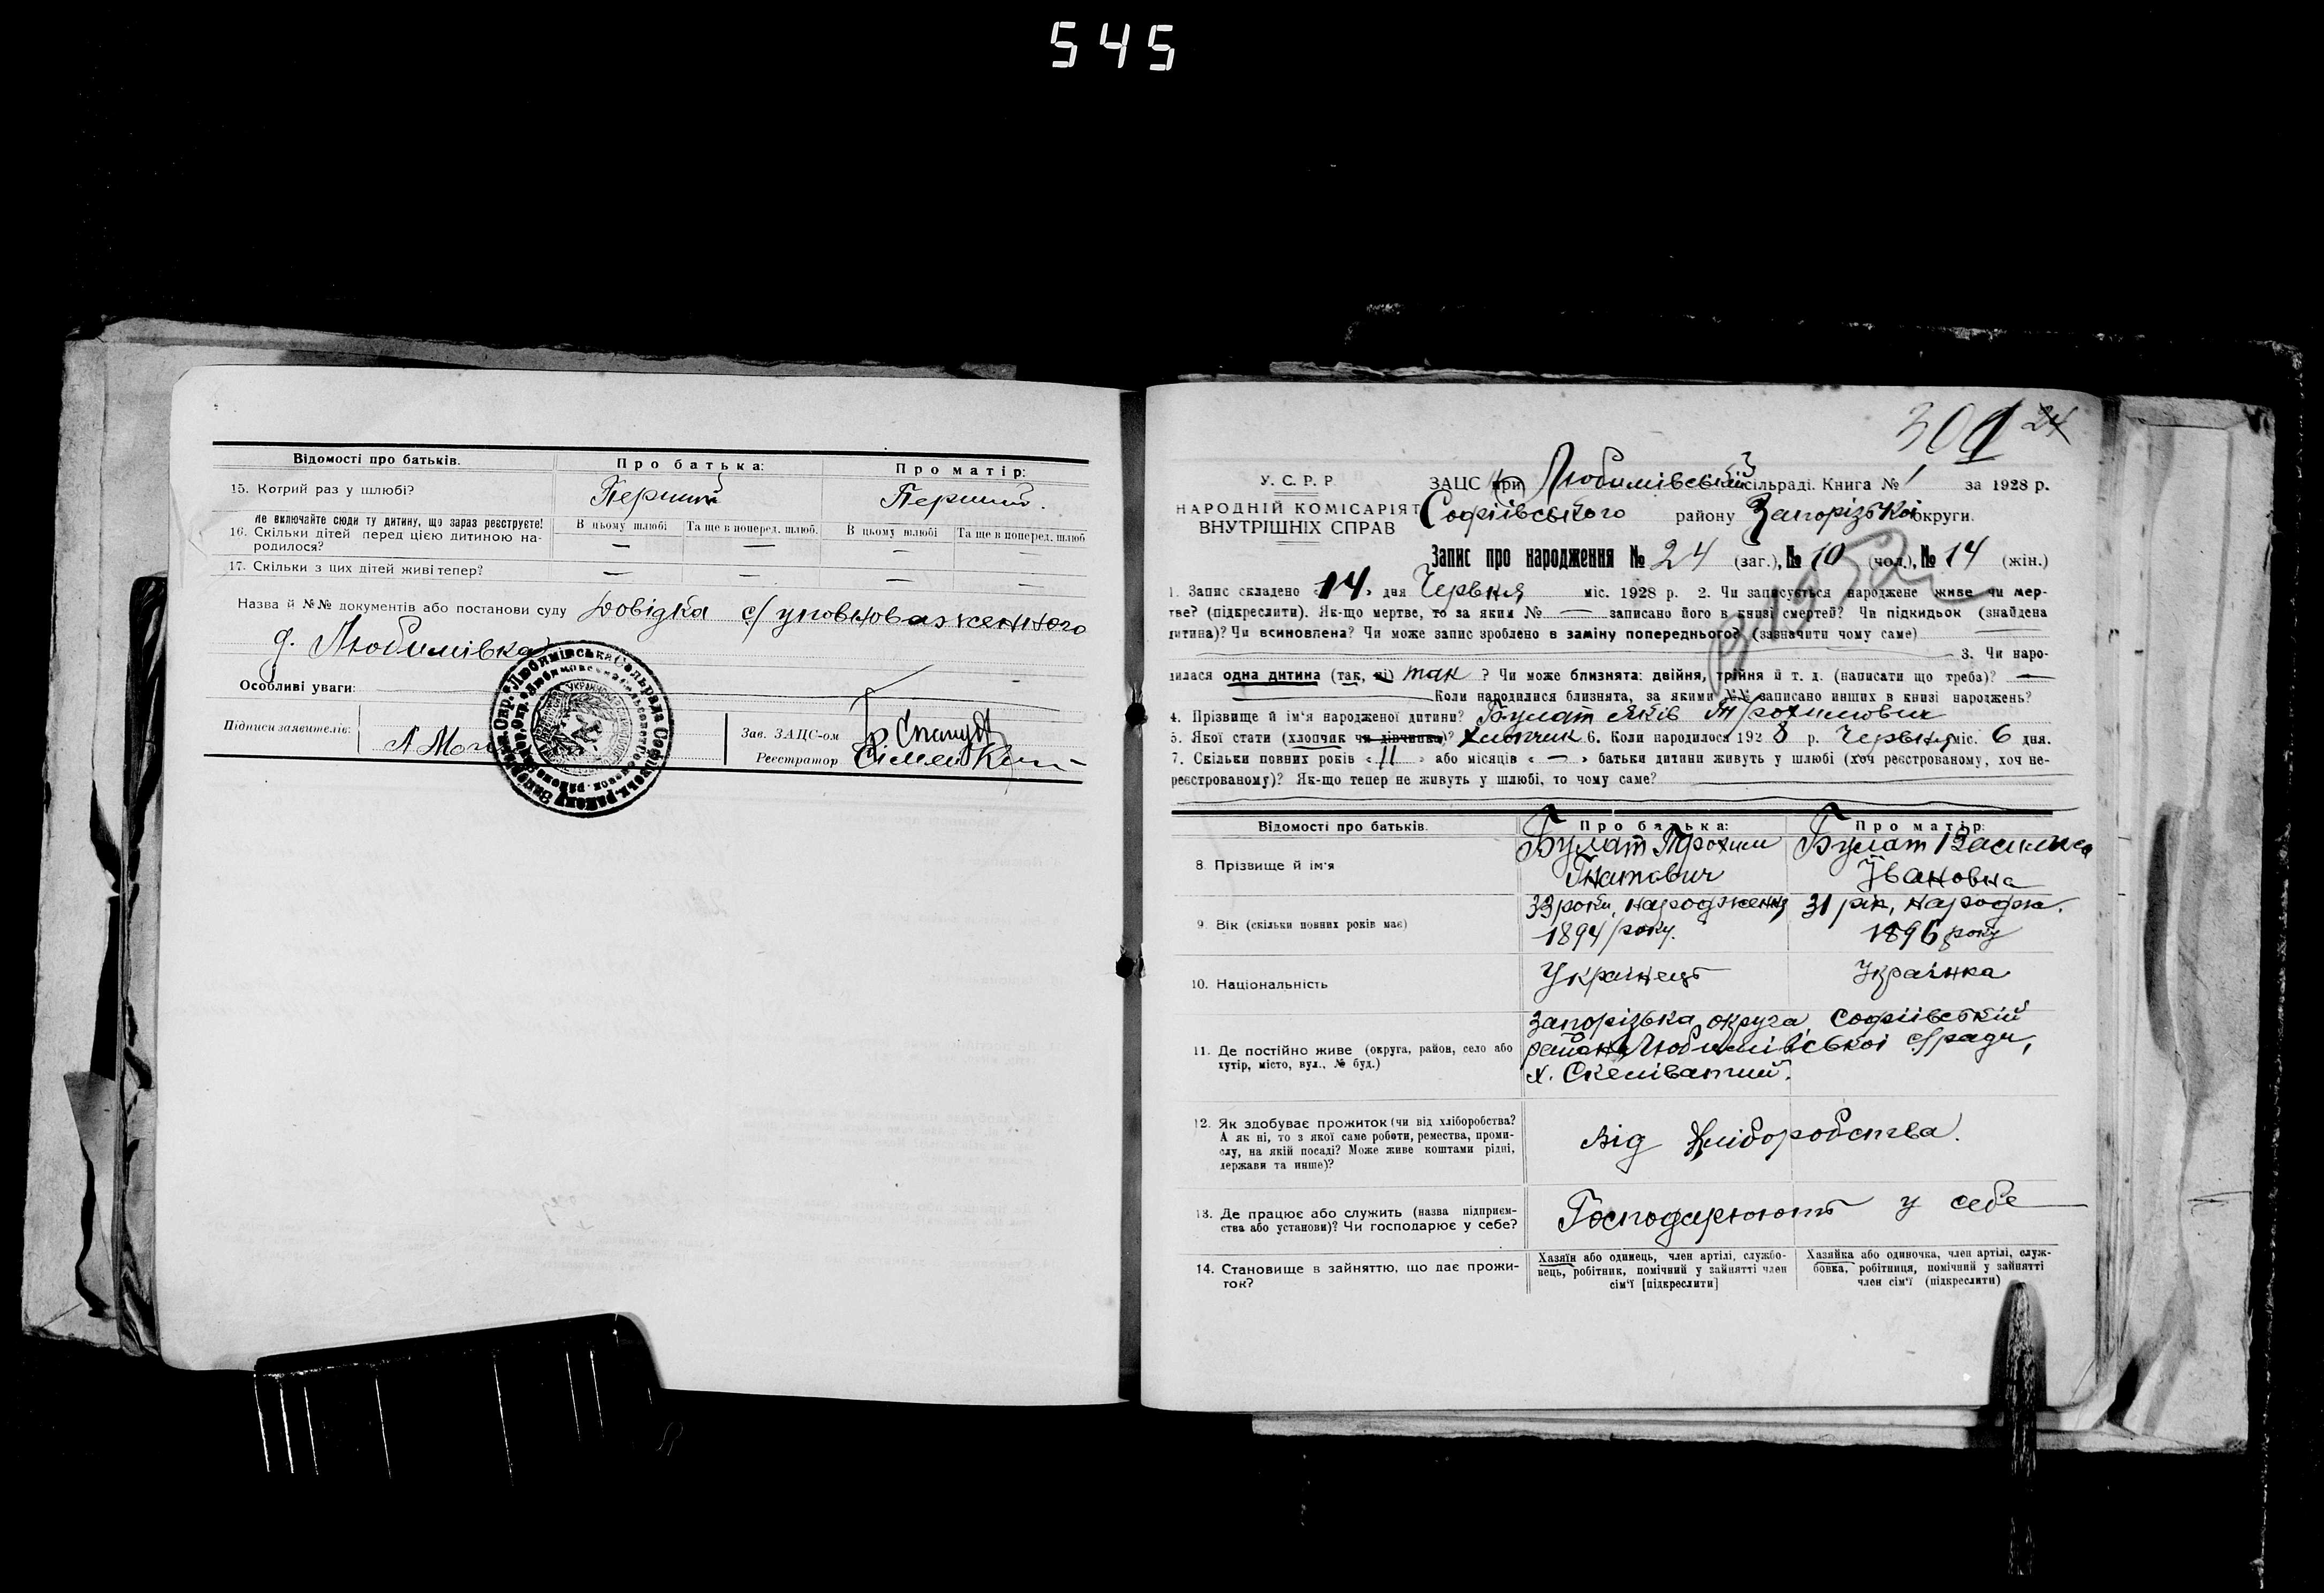 545
Відомості про батьків. Про батька: Про матір:
15. Котрий раз у шлюбі? Перший Перший.
Не включайте сюди ту дитину, що зараз реєструєте!
16. Скільки дітей перед цією дитиною народилося? В цьому шлюбі — Та ще в поперед. шлюб. — В цьому шлюбі — Та ще в поперед. шлюб —
17. Скільки з цих дітей живі тепер? — — — —
Назва й №№ документів або постанови суду Довідка с/ уповноваженного
д. Любимівка
Особливі уваги:
Підписи заявителів:
Зав. ЗАЦС-ом
Реєстратор
309 24
У. С. Р. Р.
НАРОДНІЙ КОМІСАРІЯТ
ВНУТРІШНІХ СПРАВ
ЗАЦС при Любимівській сільраді. Книга № 1 за 1928 р.
Софіівського району Запорізькоі округи.
Запис про народження № 24 (заг.), № 10 (чол.), № 14 (жін.)
1. Запис складено «14» дня Червня міс. 1928 р. 2. Чи записується народжене живе чи мер-
тве? (підкреслити). Як-що мертве, то за яким № — записано його в книзі смертей? Чи підкидьок (знайдена
дитина)? Чи всиновлена? Чи може запис зроблено в заміну попереднього? (зазначити чому саме)
3. Чи наро-
дилася одна дитина (так, ні) так ? Чи може близнята: двійня, трійня й т. д. (написати що треба)? —
Коли народилися близнята, за якими №№ записано инших в книзі народжень?
4. Прізвище й ім'я народженої дитини? Булат Яків Трохимович
5. Якої стати (хлопчик чи дівчинка)? Хлопчик 6. Коли народилося 1928 р. Червня міс. 6 дня.
7. Скільки повних років «11» або місяців «—» батьки дитини живуть у шлюбі (хоч реєстрованому, хоч не-
реєстрованому)? Як-що тепер не живуть у шлюбі, то чому саме?
Відомості про батьків. Про батька: Про матір:
8. Прізвище й ім'я Булат Трохим Булат
Гнатович Івановна
9. Вік (скільки повних років має) 33 роки, народження 31 рік, народж.
1894 року. 1896 року
10. Національність Украінець Украінка
11. Де постійно живе (округа, район, село або
хутір, місто, вул., № буд.)
Запорізька округа Софіівській
район, Любимівськоі с/ради,
х. Скеліватий.
12. Як здобуває прожиток (чи від хліборобства?
А як ні, то з якої саме роботи, ремества, проми-
слу, на якій посаді? Може живе коштами рідні,
держави та инше)?
Від Хліборобства.
13. Де працює або служить (назва підприєм-
ства або установи)? Чи господарює у себе?
Господарюють у себе
14. Становище в зайняттю, що дає прожи-
ток?
Хазяїн або одинець, член артілі, службо-
вець, робітник, помічний у зайнятті член
сім'ї [підкреслити]
Хазяйка або одиночка, член артілі, служ-
бовка, робітниця, помічний у зайнятті
член сім'ї (підкреслити)